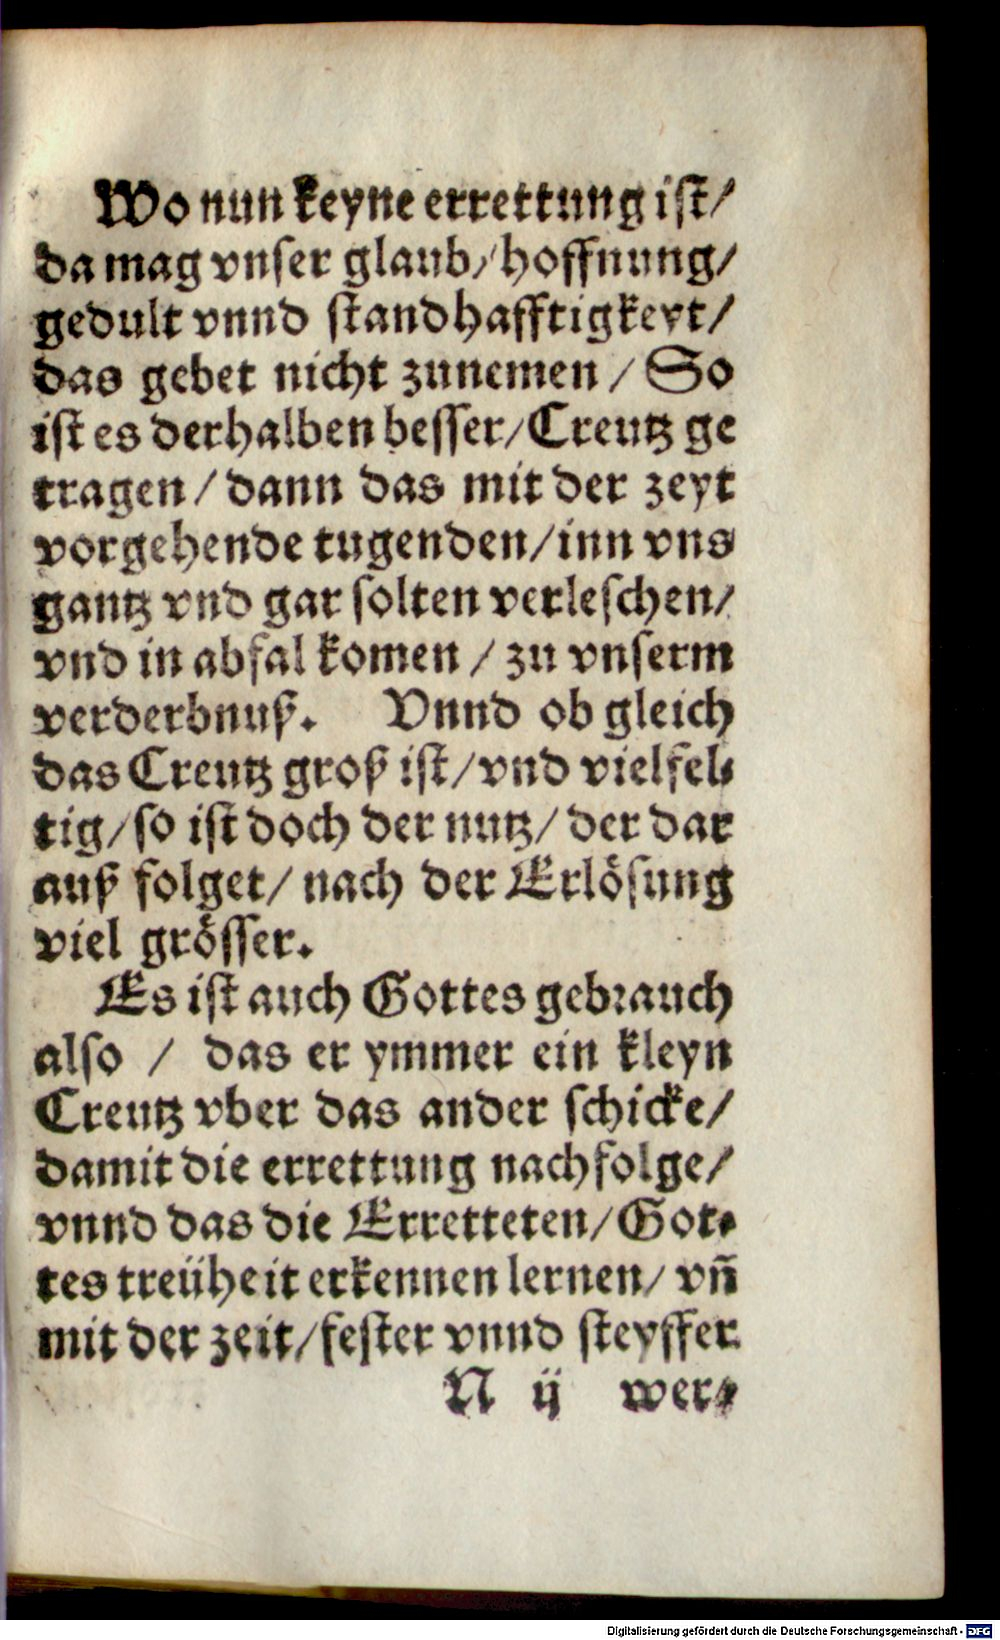 Wo nun keyne errettung ist/
da mag vnser glaub/ hoffnung/
gedult vnnd standhafftigkeyt/
das gebet nicht zunemen / So
ist es derhalben besser/ Creutz ge
tragen / dann das mit der zeyt
vorgehende tugenden/ inn vns
gantz vnd gar solten verleschen/
vnd in abfal komen / zu vnserm
verderbnuß. Vnnd ob gleich
das Creutz groß ist/ vnd vielfel-
tig/ so ist doch der nutz/ der dar
auß folget/ nach der Erlösung
viel grösser.
Es ist auch Gottes gebrauch
also / das er ymmer ein kleyn
Creutz vber das ander schicke/
damit die errettung nachfolge/
vnnd das die Erretteten/ Got-
tes treüheit erkennen lernen/ vn̄
mit der zeit/ fester vnnd steyffer
N ij wer-
Digitalisierung gefördert durch die Deutsche Forschungsgemeinschaft - DFG